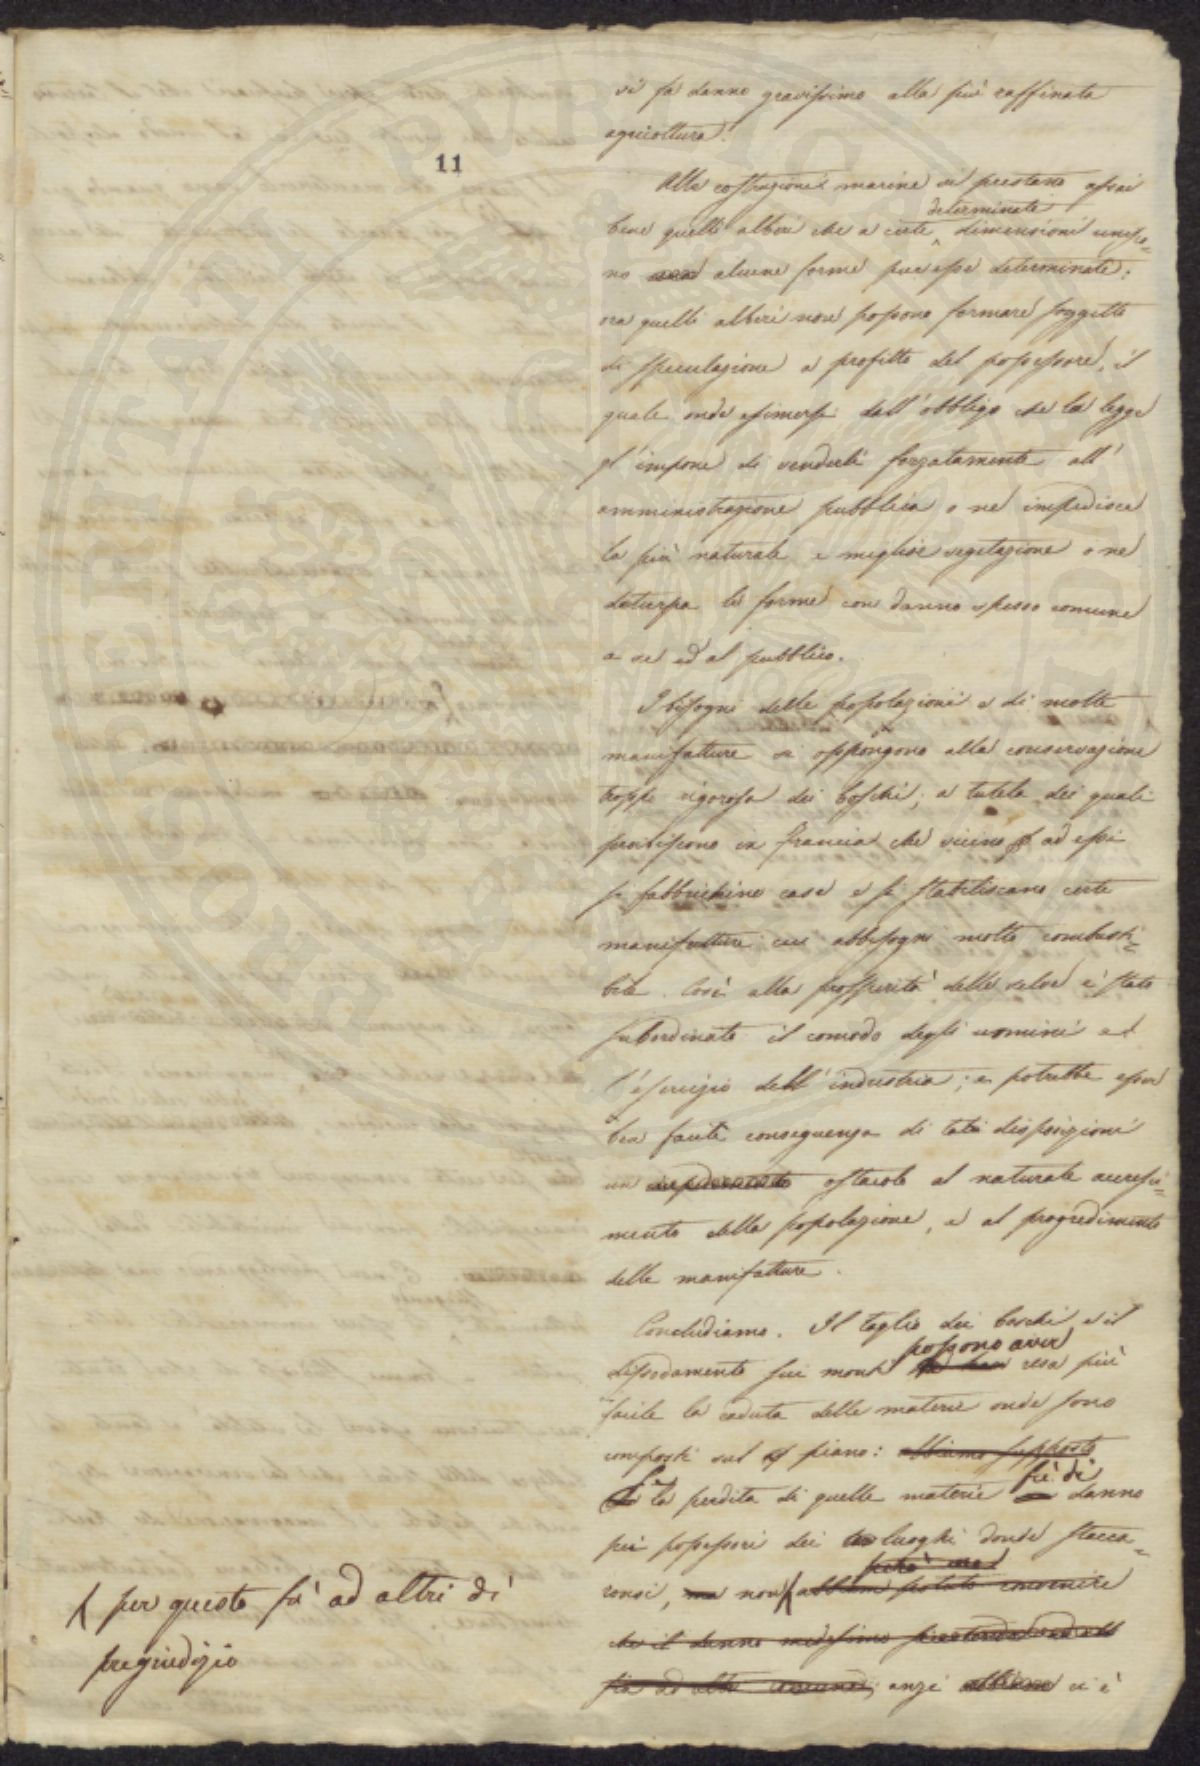 11
si fa danno gravissimo alla più raffinata
agricoltura.
Alle costruzioni marine si prestano assai
bene quelli alberi che a certe determinate dimensioni unisco=
no alcune forme pur esse determinate:
ora quelli alberi non possono formare soggetto
di speculazione a profitto del possessore, il
quale onde esimersi dall'obbligo che la legge
gl'impone di venderli forzatamente all'
amministrazione pubblica o ne impedisce
la più naturale e miglior vegetazione o ne
deturpa le forme con danno spesso comune
a se ed al pubblico.
I bisogni delle popolazioni e di molte
manifatture si oppongono alla conservazione
troppo rigorosa dei boschi; a tutela dei quali
proibiscono in Francia che vicino ad essi
si fabbrichino case e si stabiliscano certe
manifatture cui abbisogni molto combusti=
bile. Così alla prosperità delle selve è stato
subordinato il comodo degli uomini ed
l'esercizio dell'industria; e potrebbe esser
ben facile conseguenza di tali disposizioni
un impedimento ostacolo al naturale accresci=
mento della popolazione, e al progredimento
delle manifatture.
Concludiamo. Il taglio dei boschi e il
dissodamento sui monti possono aver resa più
facile la caduta delle materie onde sono
composti sul piano: abbiamo supposto
la perdita di quelle materie fù di danno
pei possessori dei luoghi donde stacca=
ronsi, ma non però mai abbiam potuto convenire
che il danno medesimo
sia ad altri anzi abbiamo ci è
per questo fù ad altri di
pregiudizio